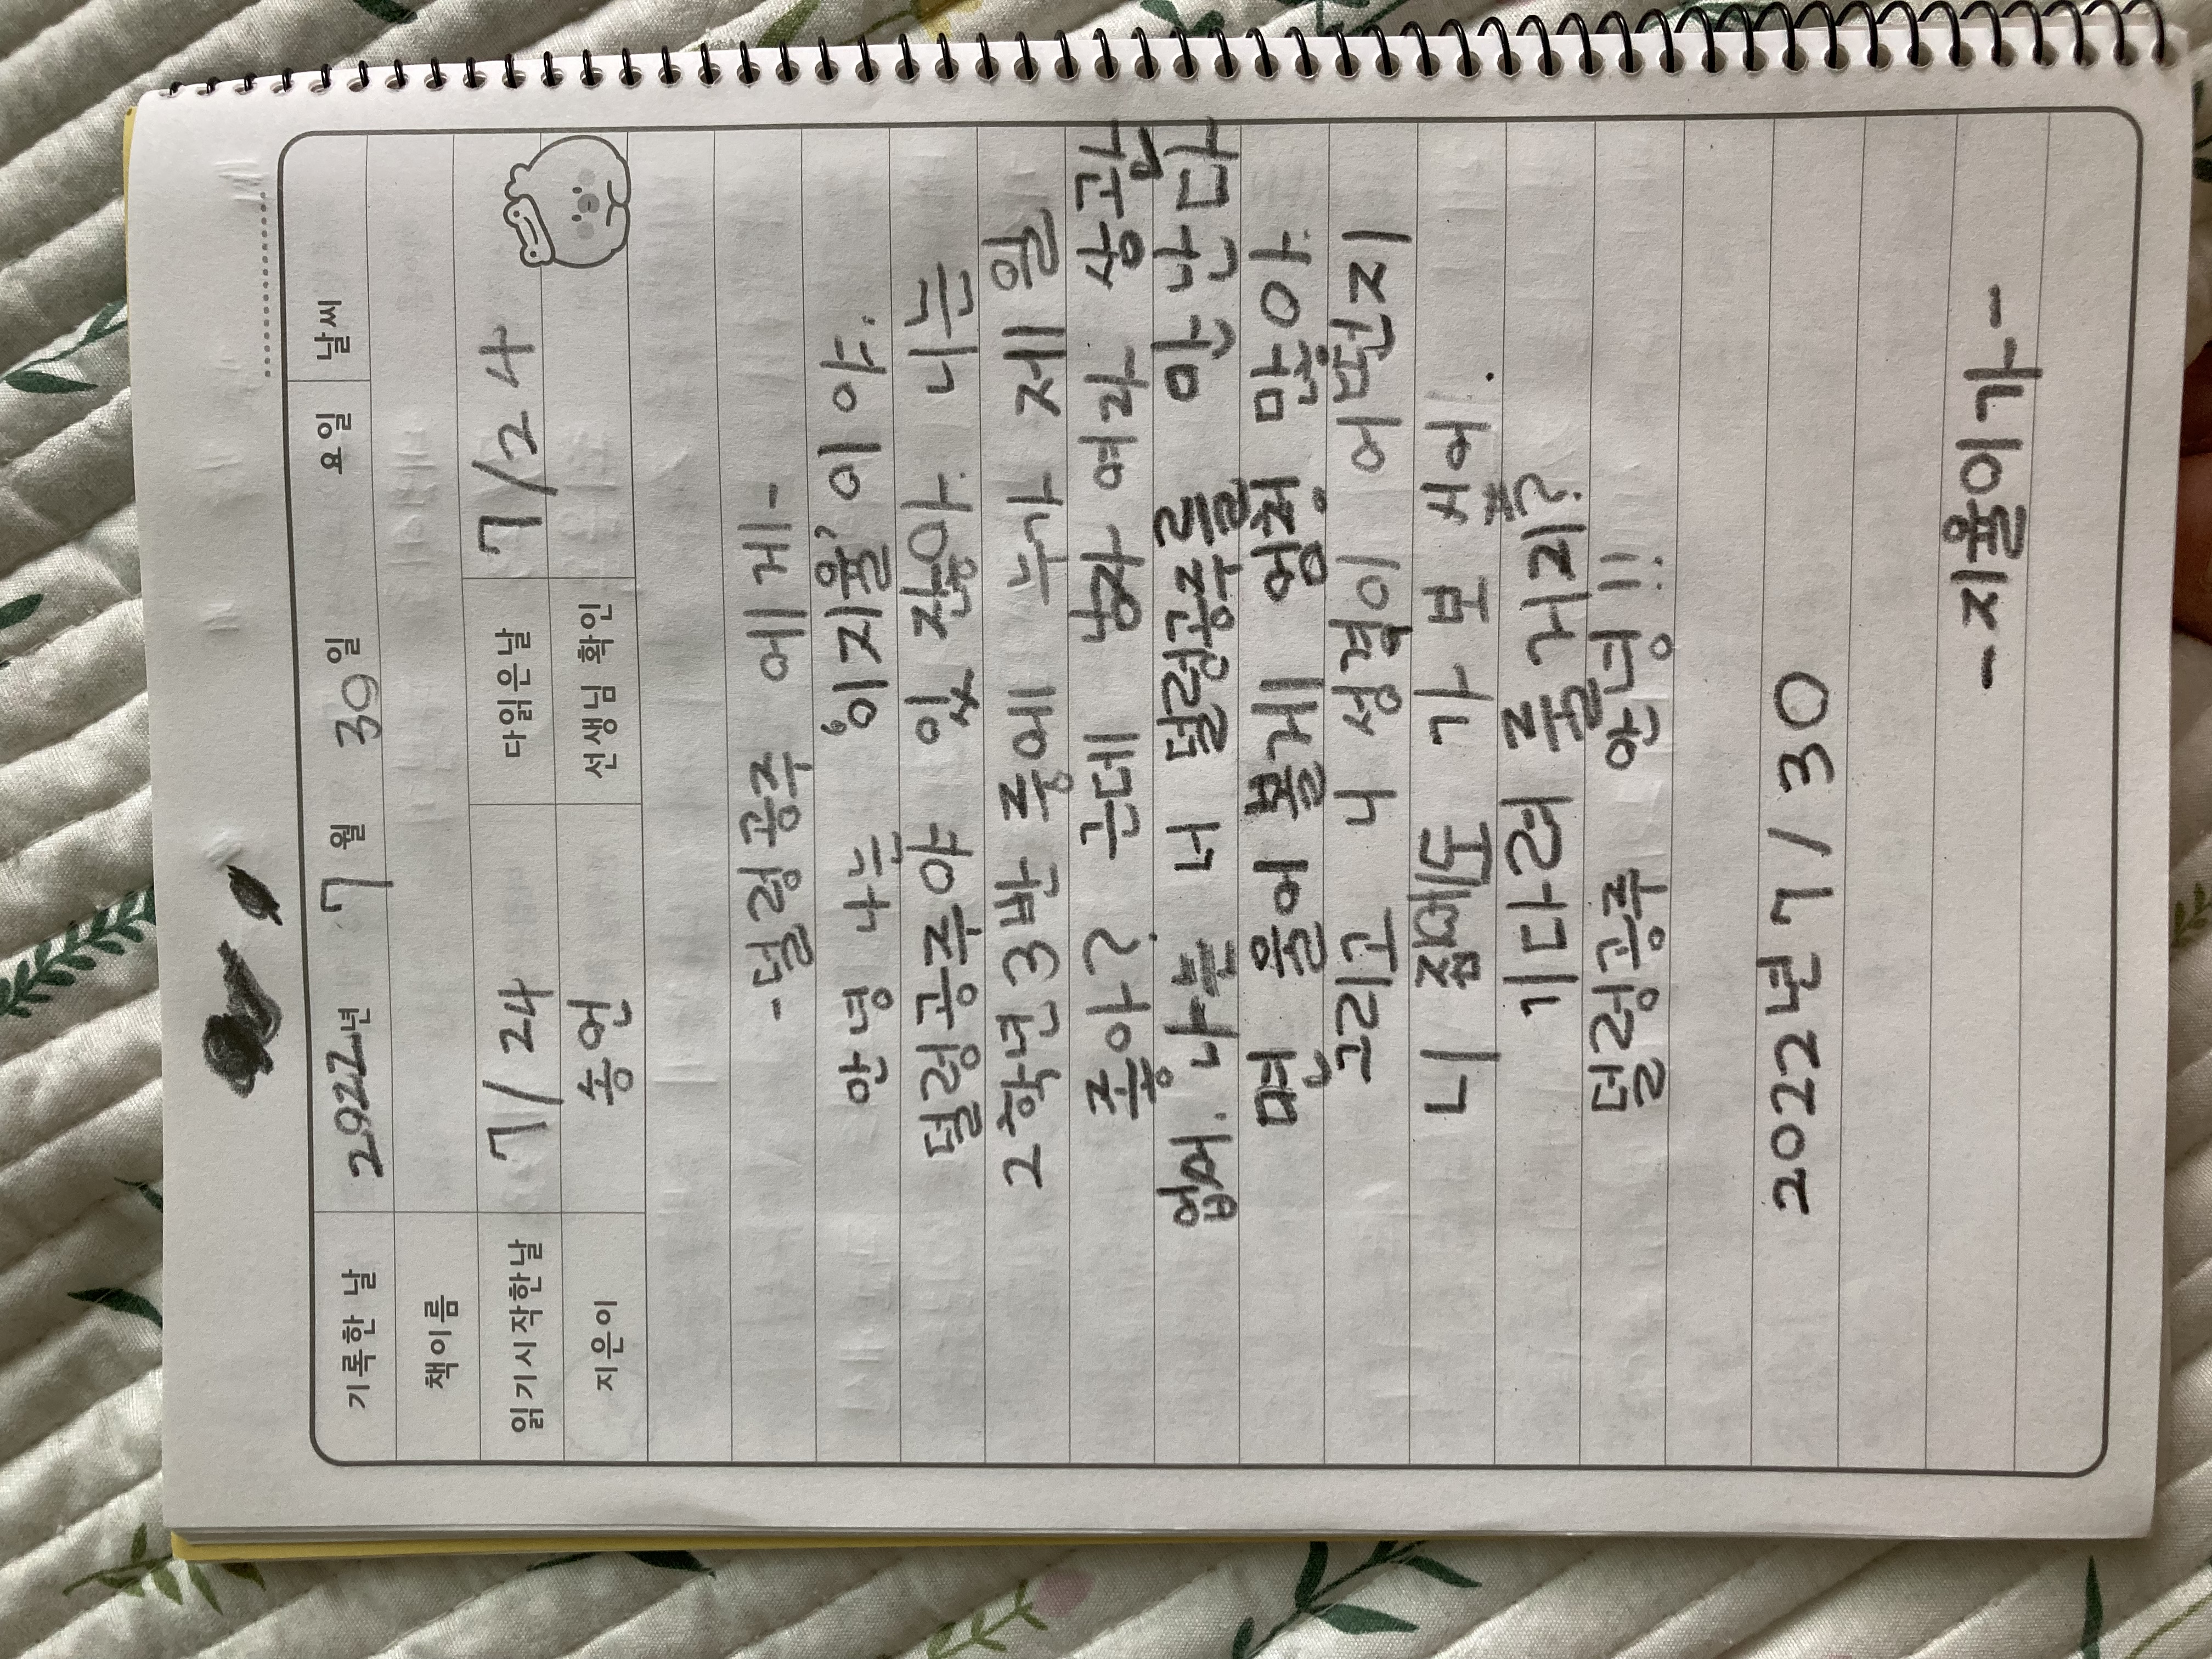 기록한 날 2022년 7월 30일 요일 날씨
책이름
읽기시작한날 7/24 다읽은날 7/24
지은이 송언 선생님 확인
-덜렁공주 에게-
안녕 나는 '이지율' 이야.
덜렁공주야 있잖아. 너는
2학년3반 중에 누가 제일
좋아? 근데 남자 여자 상관
없어. 나는 너 덜렁공주를 만난다
면 물어 볼게 엄청 많아.
그리고 니 성격이 어떤지
니 집에도 가 보 싶어.
기다려 줄거지?
덜렁공주 안녕!!
2022년 7/30
-지율이가-